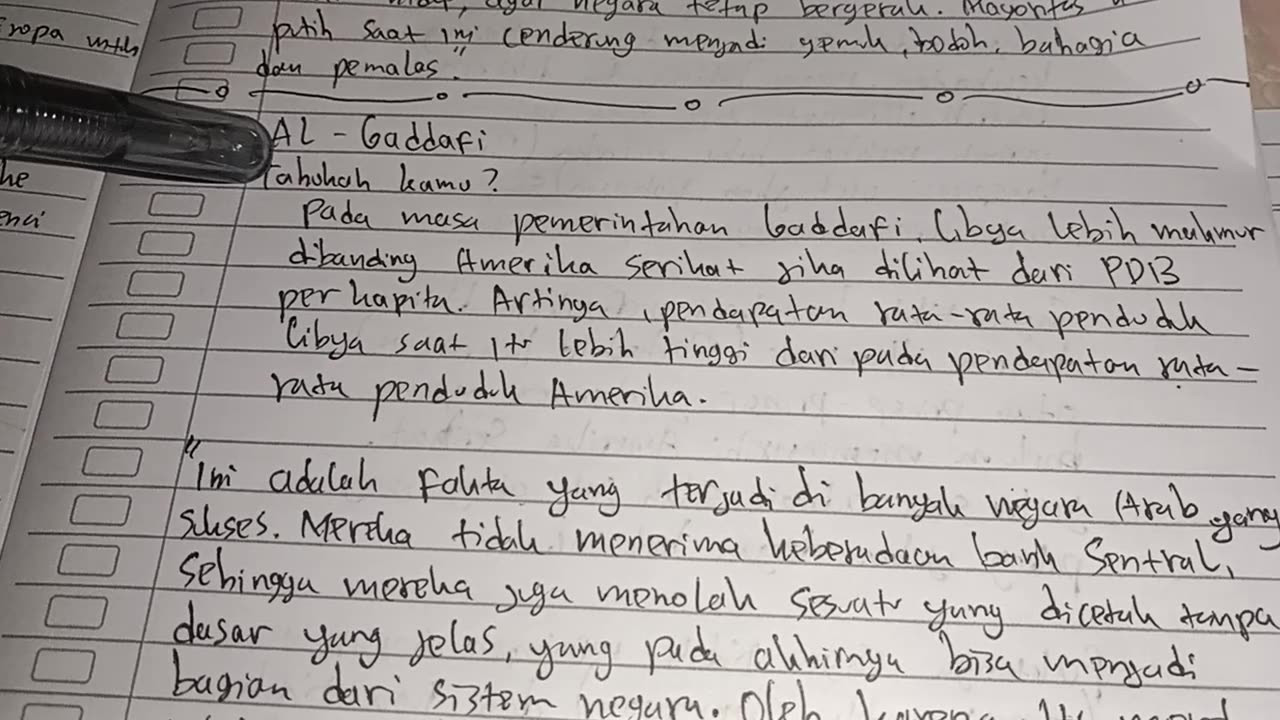 negara tetap bergerak. Mayoritas
ropa
putih saat ini cenderung menjadi gemuk, bodoh, bahagia
dan pemalas."
AL - Gaddafi
Tahukah kamu?
he
enci
Pada masa pemerintahan Gaddafi, Libya lebih makmur
dibanding Amerika Serikat jika dilihat dari PDB
per kapita. Artinya, pendapatan rata-rata penduduk
Libya saat itu lebih tinggi dari pada pendapatan rata-
rata penduduk Amerika.
"Ini adalah fakta yang terjadi di banyak negara (Arab yang
sukses. Mereka tidak menerima keberadaan bank Sentral,
sehingga mereka juga menolak sesuatu yang dicetak tanpa
dasar yang jelas, yang pada akhirnya bisa menjadi
bagian dari sistem negara. Oleh karena itu